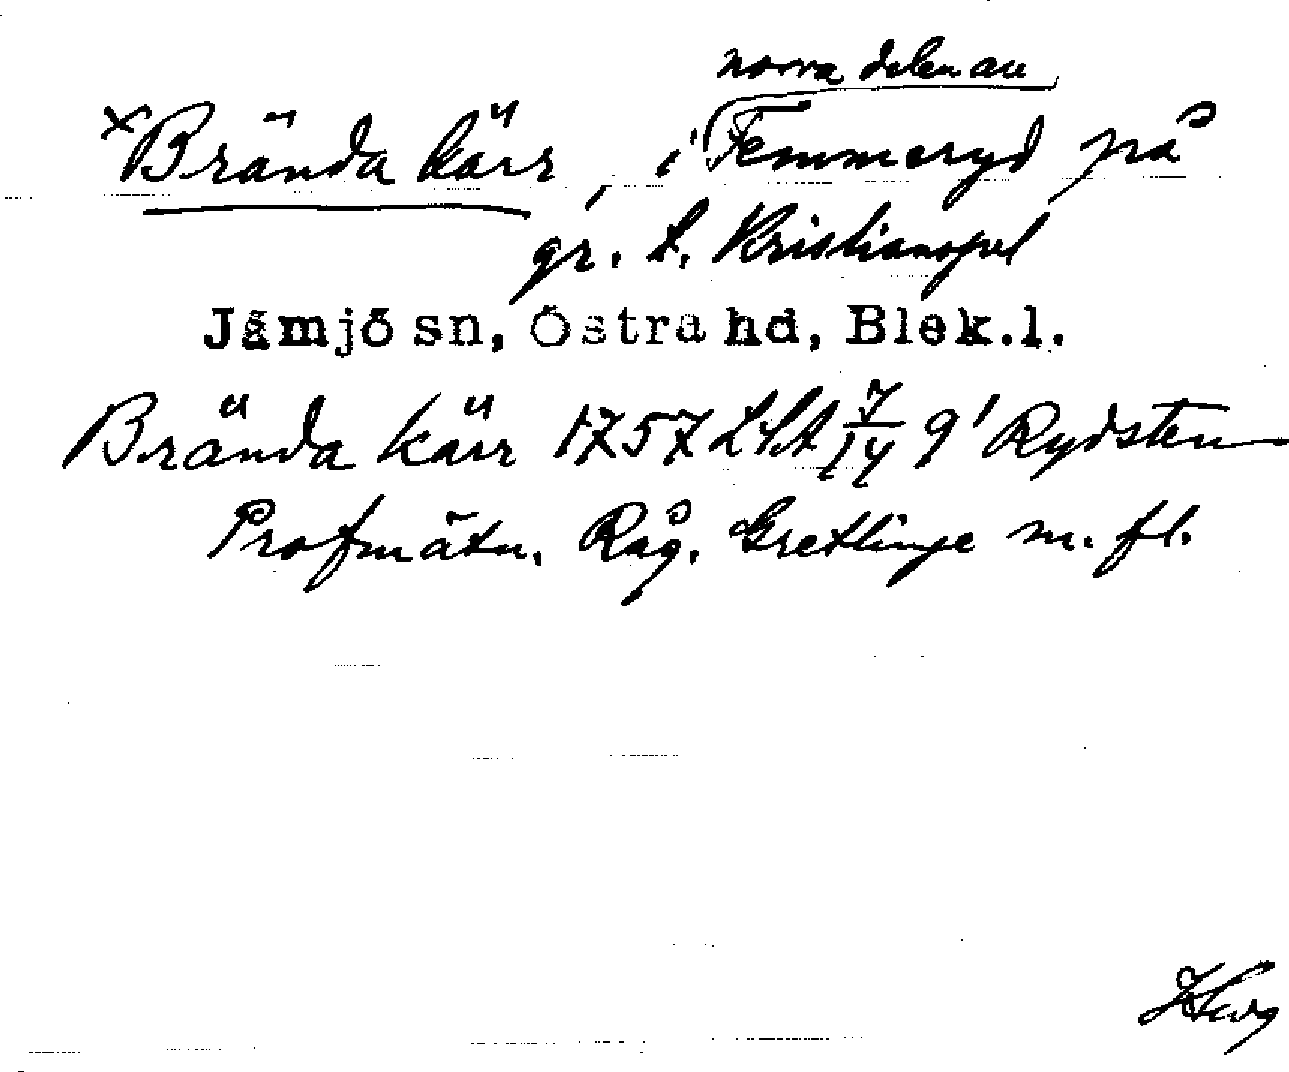 norra delen av
×Brända kärr, i Femmeryd på
gr. t. Kristianopel
Jämjö sn, Östra hd, Blek.l.
Brända kärr 1757 LSA 7/14 9' Rydsten
Profmätn. Råg. Gretlinge m. fl.